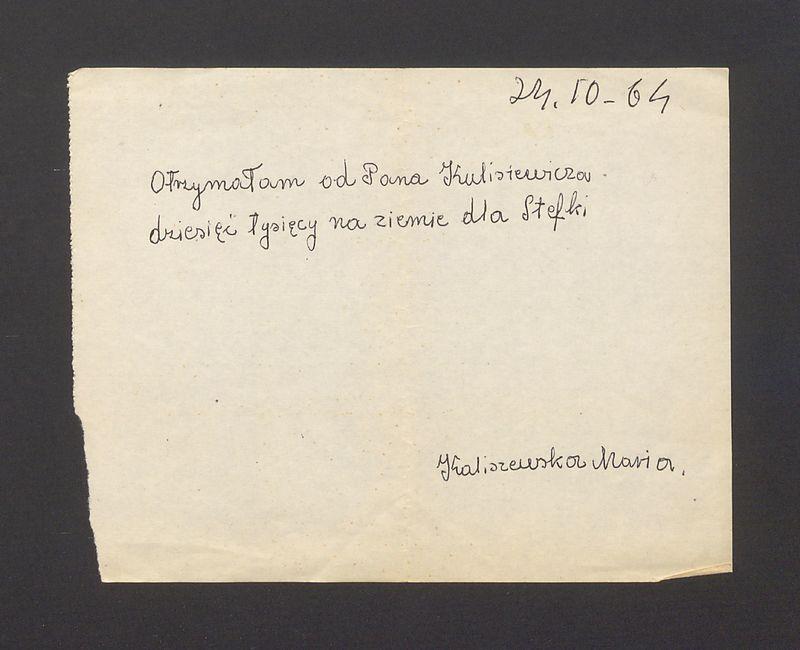 24. 10 - 64
Otrzymałam od Pana Kulisiewicza
dziesięć tysięcy na ziemie dla Stefki
Kaliszewska Maria.